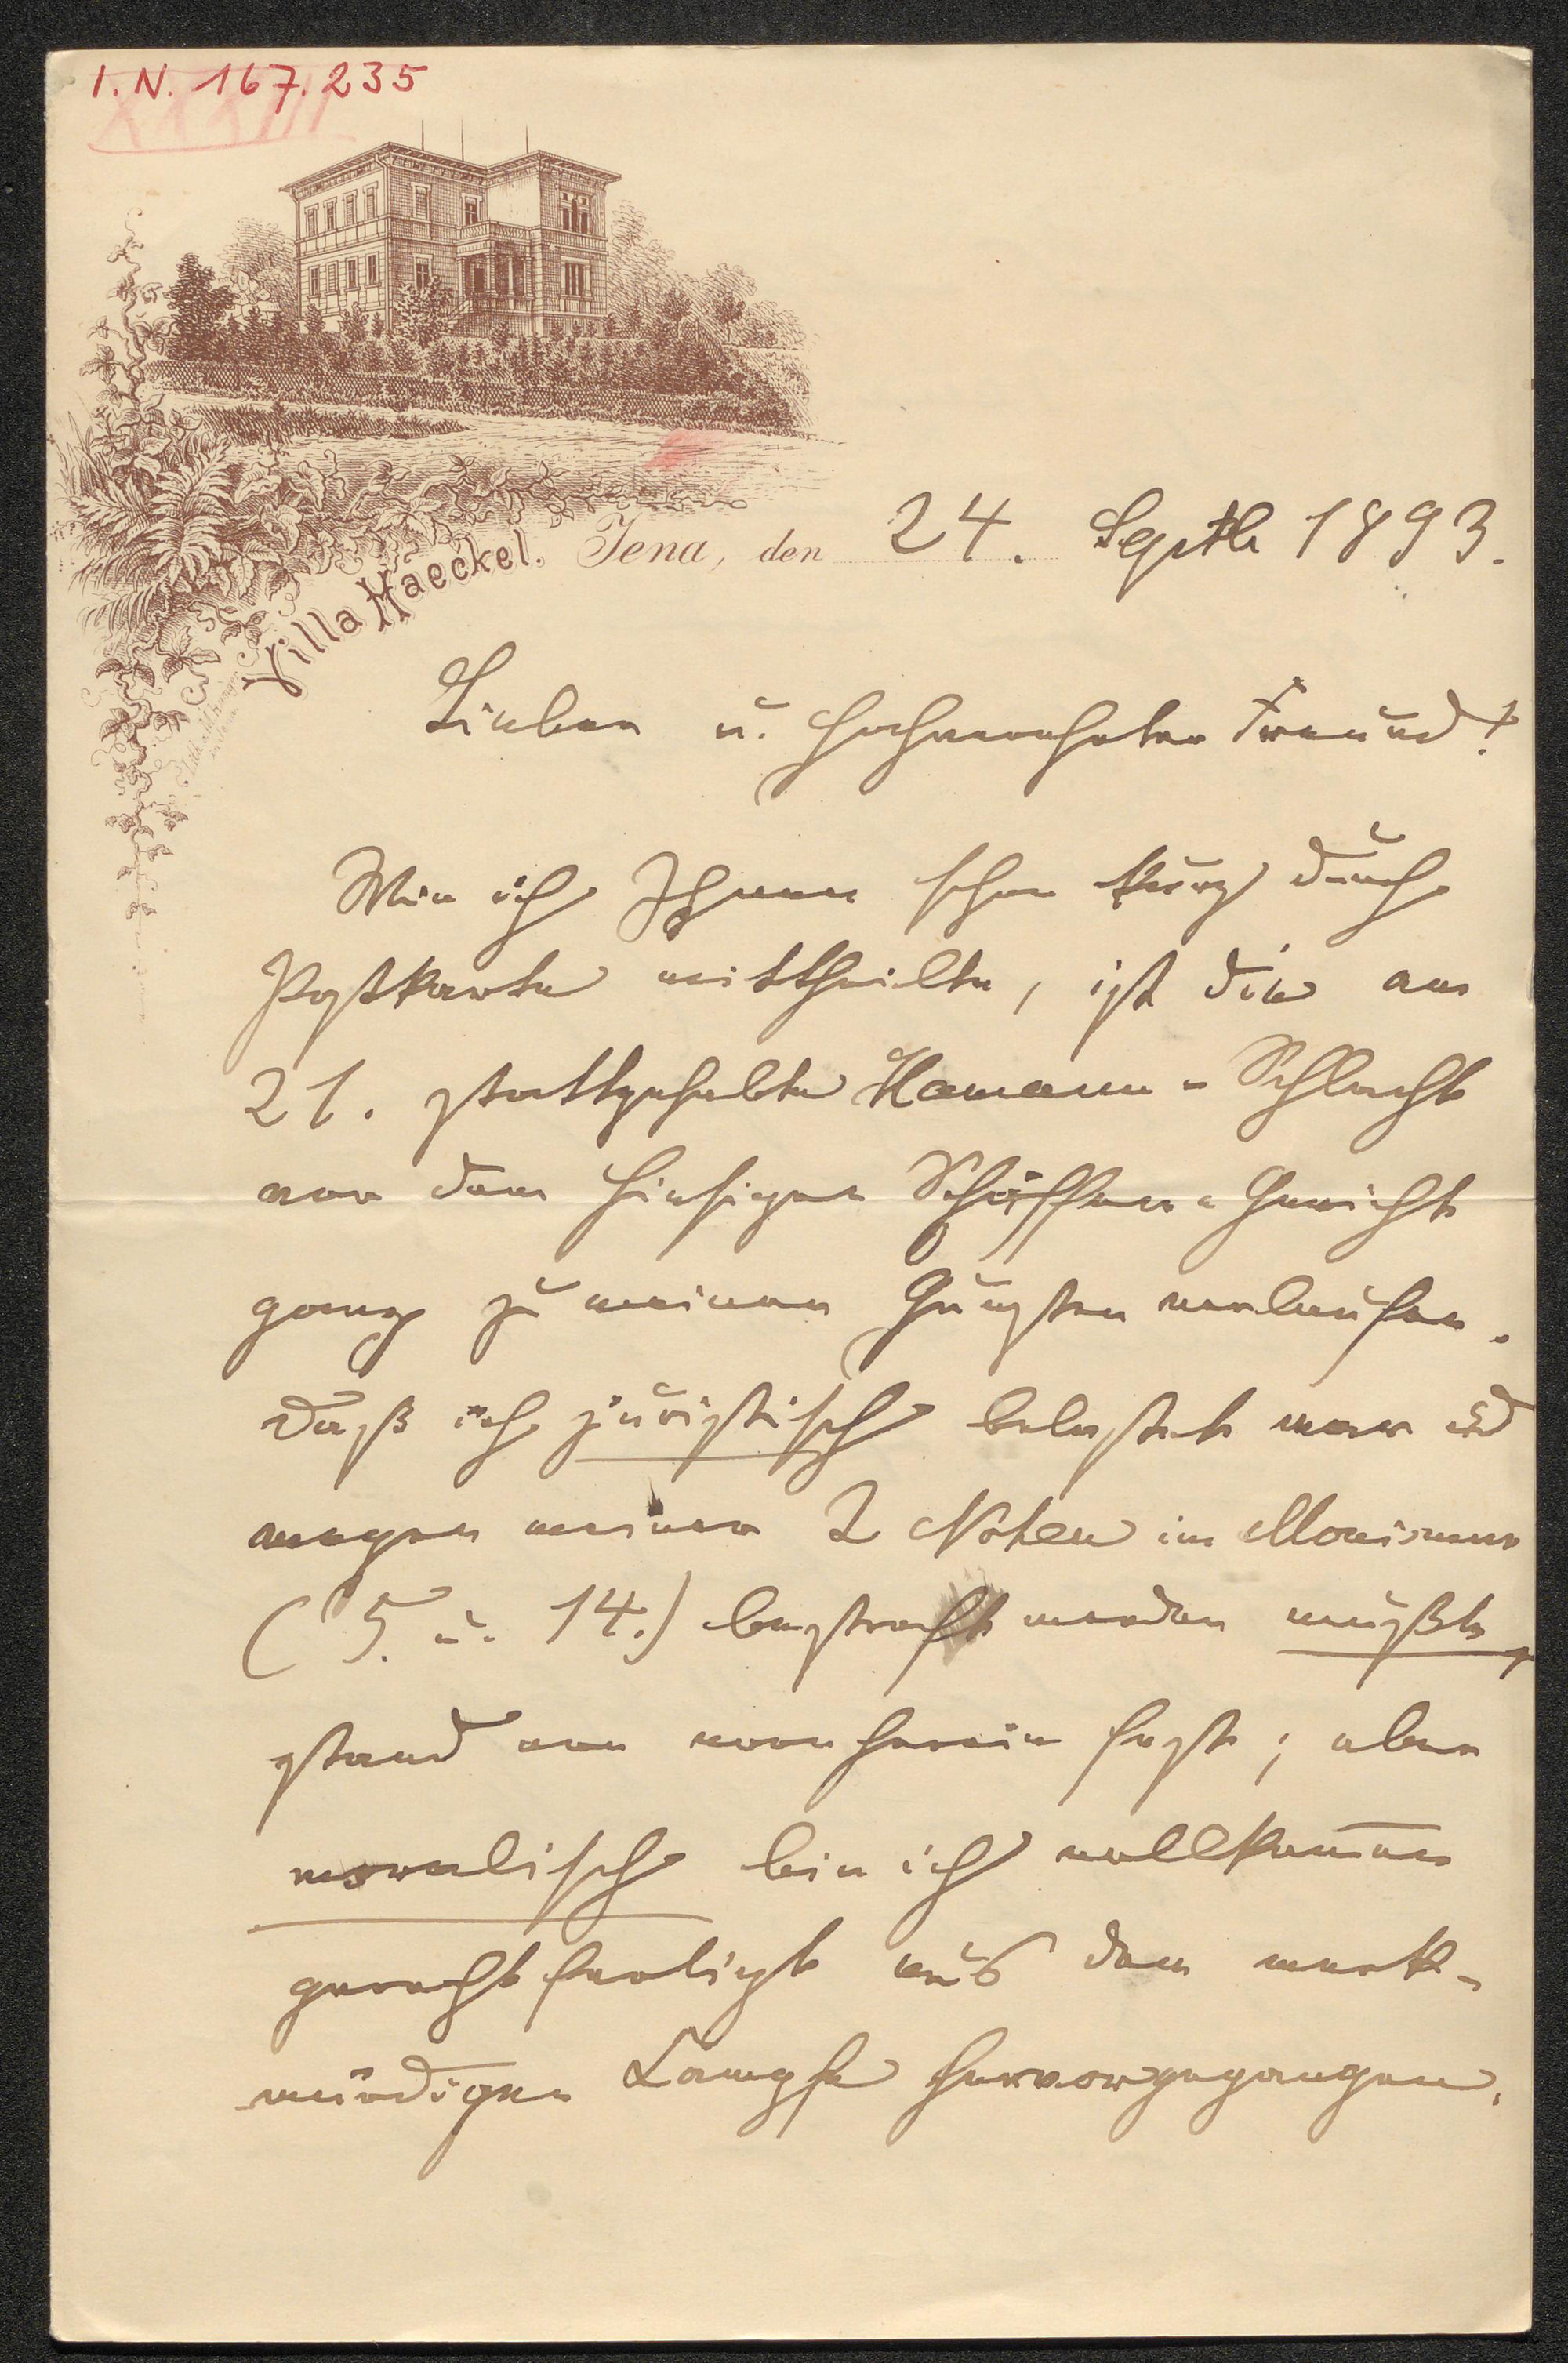 I.N. 167.235
XXXIII
Villa Haeckel.
Jena, den 24. Septb 1893.
Lieber u. hochverehrter Freund!
Wie ich Ihnen schon kurz durch
Postkarte mittheilte, ist die am
21. stattgehabte Hamann-Schlacht
vor dem hiesigen Schöffen-Gericht
ganz zu meinen Gunsten verlaufen.
Daß ich juristisch belastet war u
wegen meiner 2 Noten im Monismus
(5. u. 14.) bestraft werden mußte,
stand von vornherein fest; aber
moralisch bin ich vollkom̅en
gerechtfertigt aus dem merk-
würdigen Kampfe hervorgegangen.